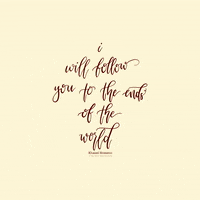 i
will follow
you to the ends
of the
world